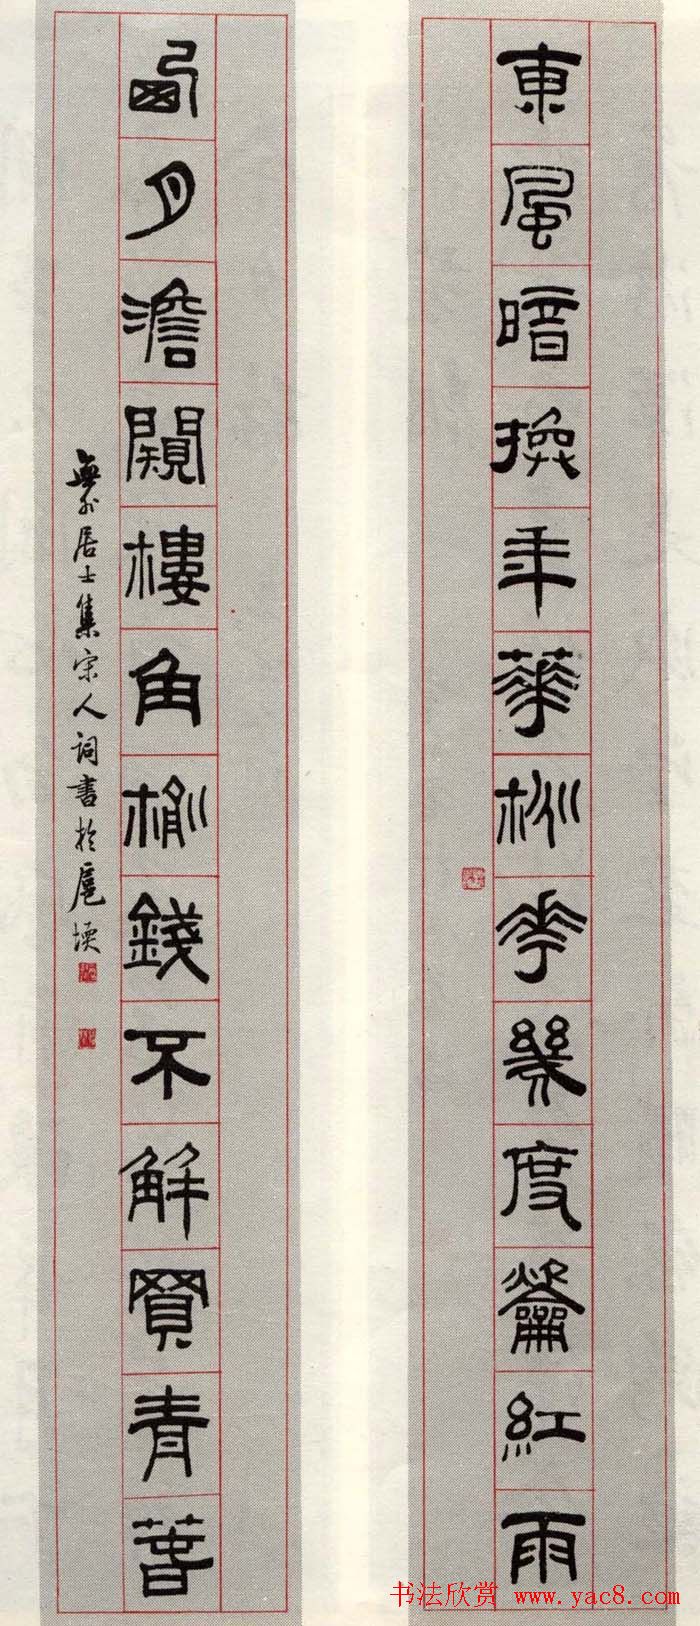 東風暗換年華桃花幾度龡紅雨
西月澹闚樓角榆錢不解買青春
無外居士集宋人詞書於扈堧
书法欣赏 www.yac8.com